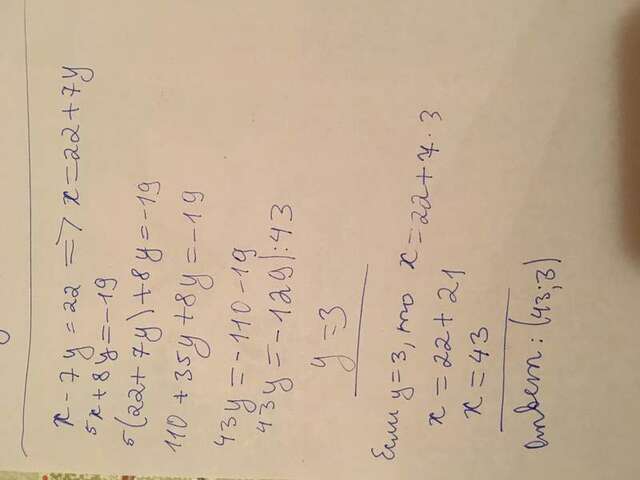 x - 7y = 22 => x = 22 + 7y
5x + 8y = -19
5(22 + 7y) + 8y = -19
110 + 35y + 8y = -19
43y = -110 - 19
43y = -129 |: 43
y = 3
Если y = 3, то x = 22 + 7 · 3
x = 22 + 21
x = 43
Ответ: (43; 3)